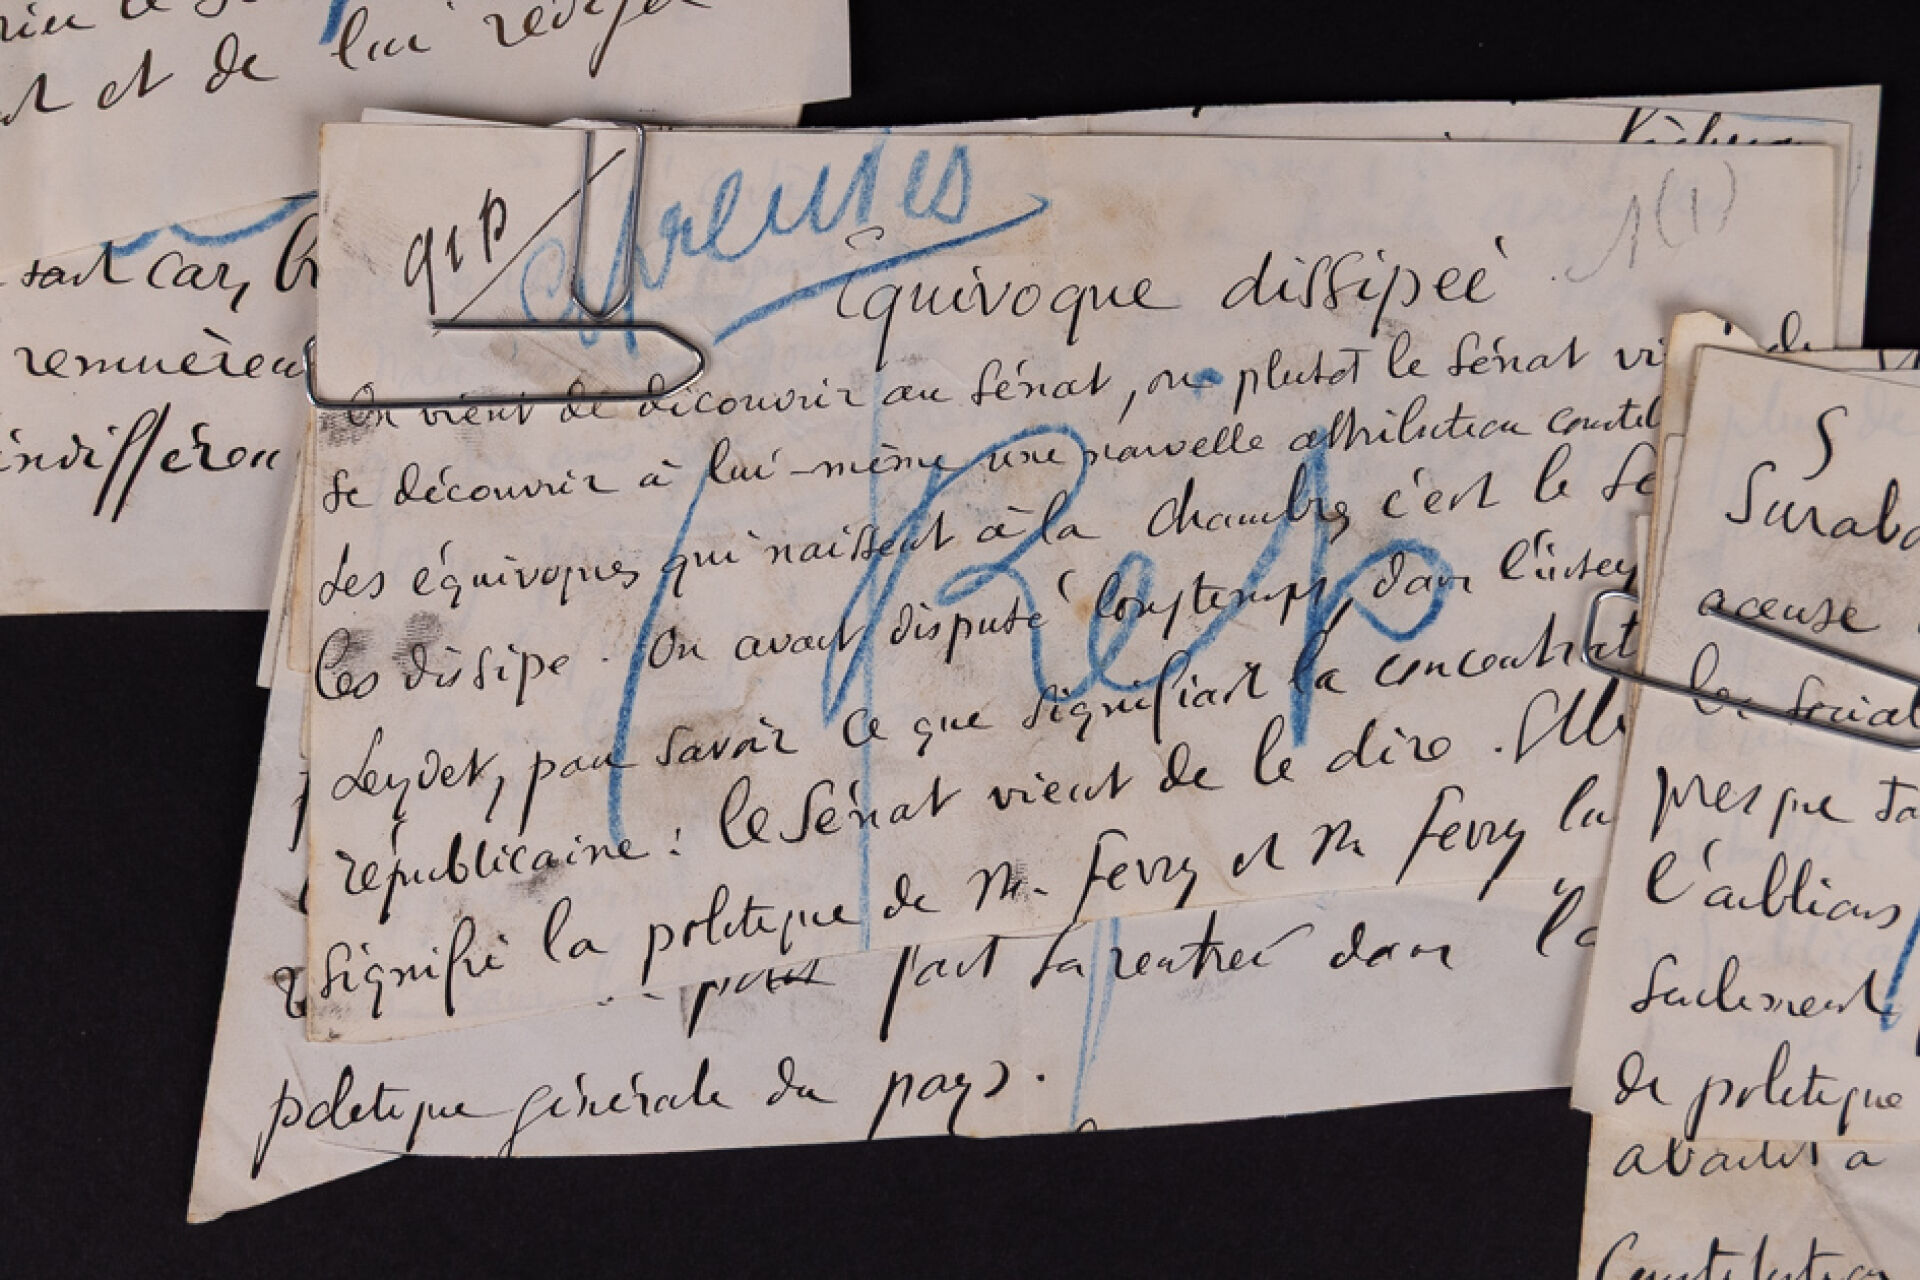 et de lui rédiger
9rp
Épreuves
1(1)
Équivoque dissipée
On vient de découvrir au Sénat, ou plutôt le Sénat vi de
se découvrir à lui-même une nouvelle attribution constit
Les équivoques qui naissent à la Chambre, c'est le Sé
les dissipe. On avait disputé longtemps, dans l'inter
Leydet, pour savoir ce que signifiait la concentrat
républicaine : le Sénat vient de le dire. Elle
signifie la politique de M. Ferry et M. Ferry la
Rep
fait sa rentrée dans la
politique générale du pays.
sait car,
remuèren
indifféren
S
accuse
les social
presque
l'oublions
seulement
de politique
avait a
Constitution